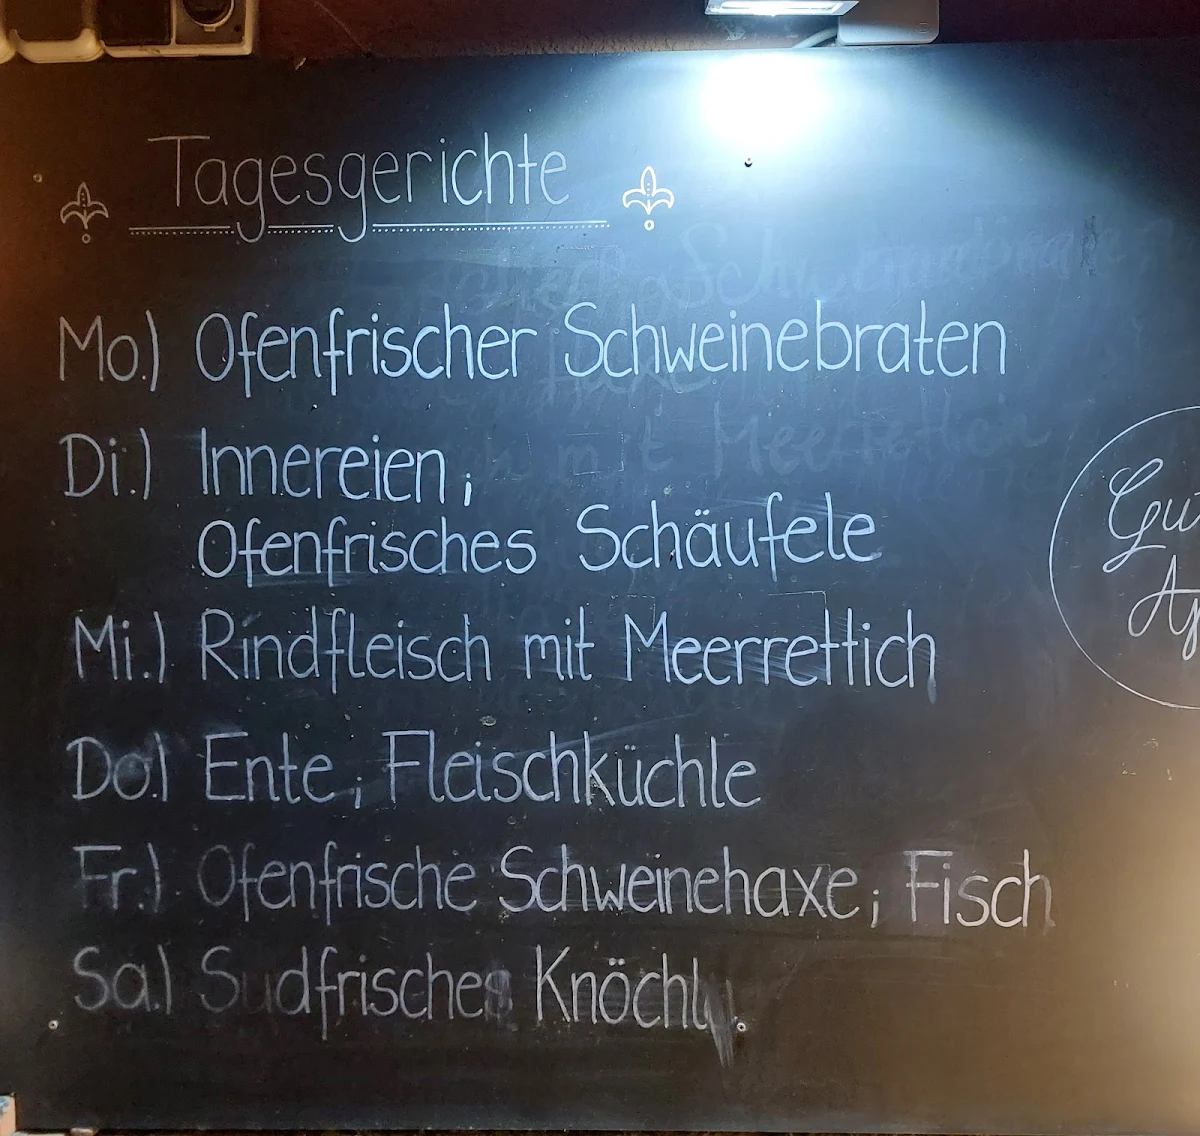 Tagesgerichte
Mo.) Ofenfrischer Schweinebraten
Di.) Innereien;
Ofenfrisches Schäufele
Mi.) Rindfleisch mit Meerrettich
Do.) Ente; Fleischküchle
Fr.) Ofenfrische Schweinehaxe; Fisch
Sa.) Sudfrisches Knöchl
Gu
Ap